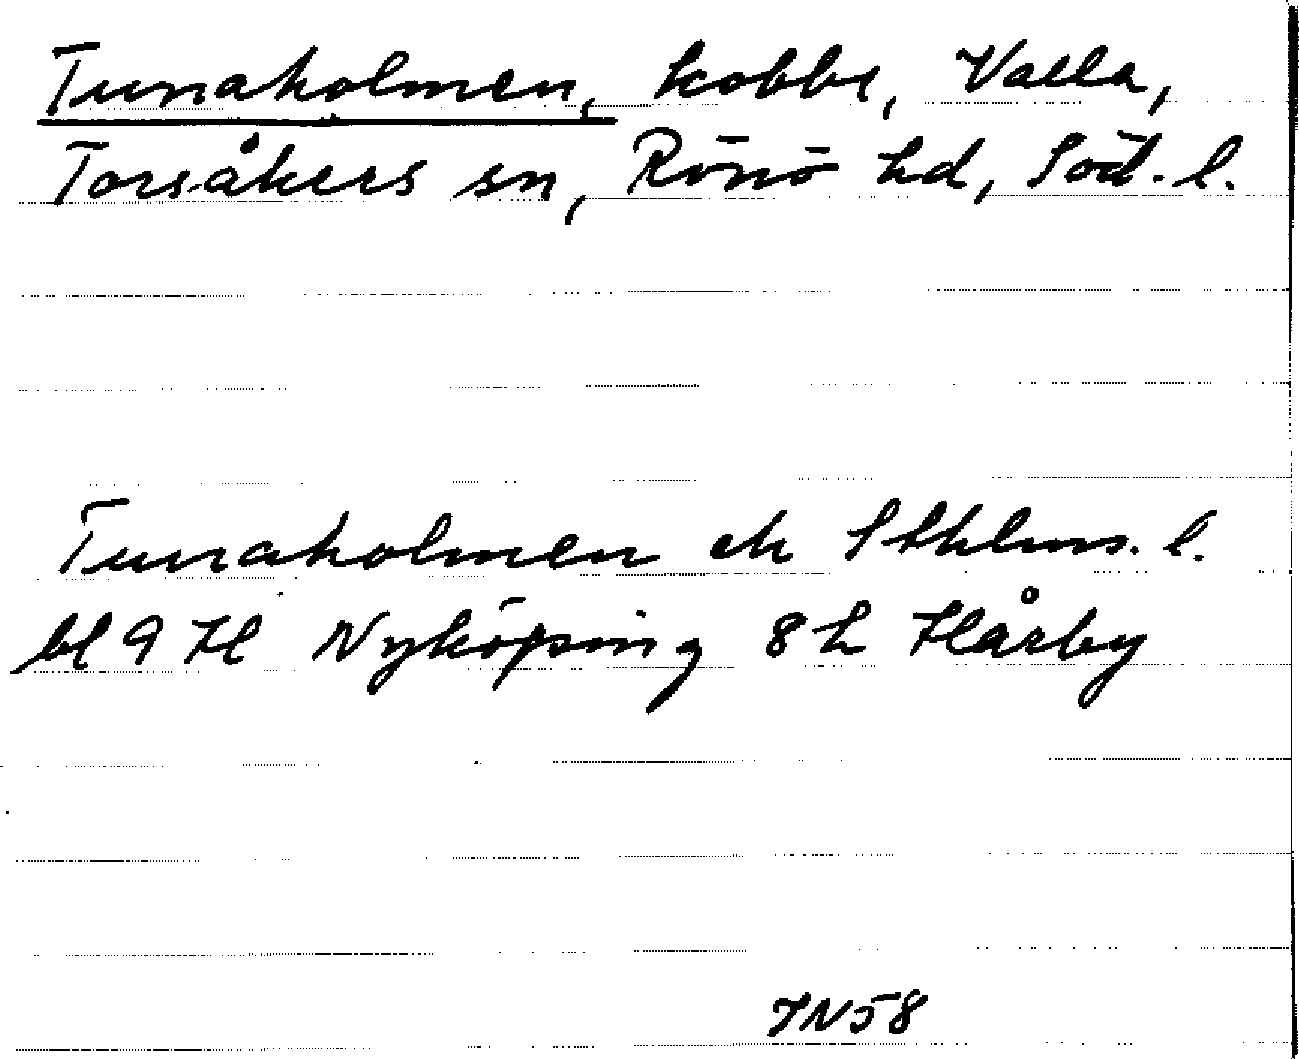 Tunaholmen, kobbe, Valla,
Torsåkers sn, Rönö hd, Söd. l.
Tunaholmen ek Sthlms. l.
bl 9 H Nyköping 8 h Hårby
JN58